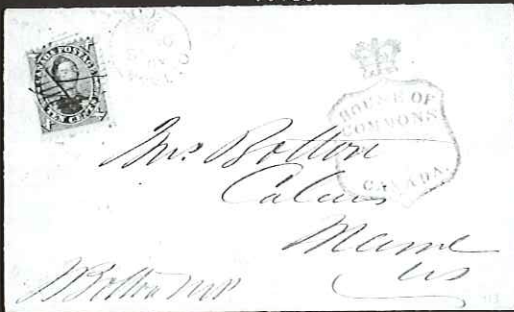 CANADA POSTAGE
TEN CENTS
HOUSE OF
COMMONS
CANADA.
Mrs Bolton
Calais
Maine
US
J Bolton MP